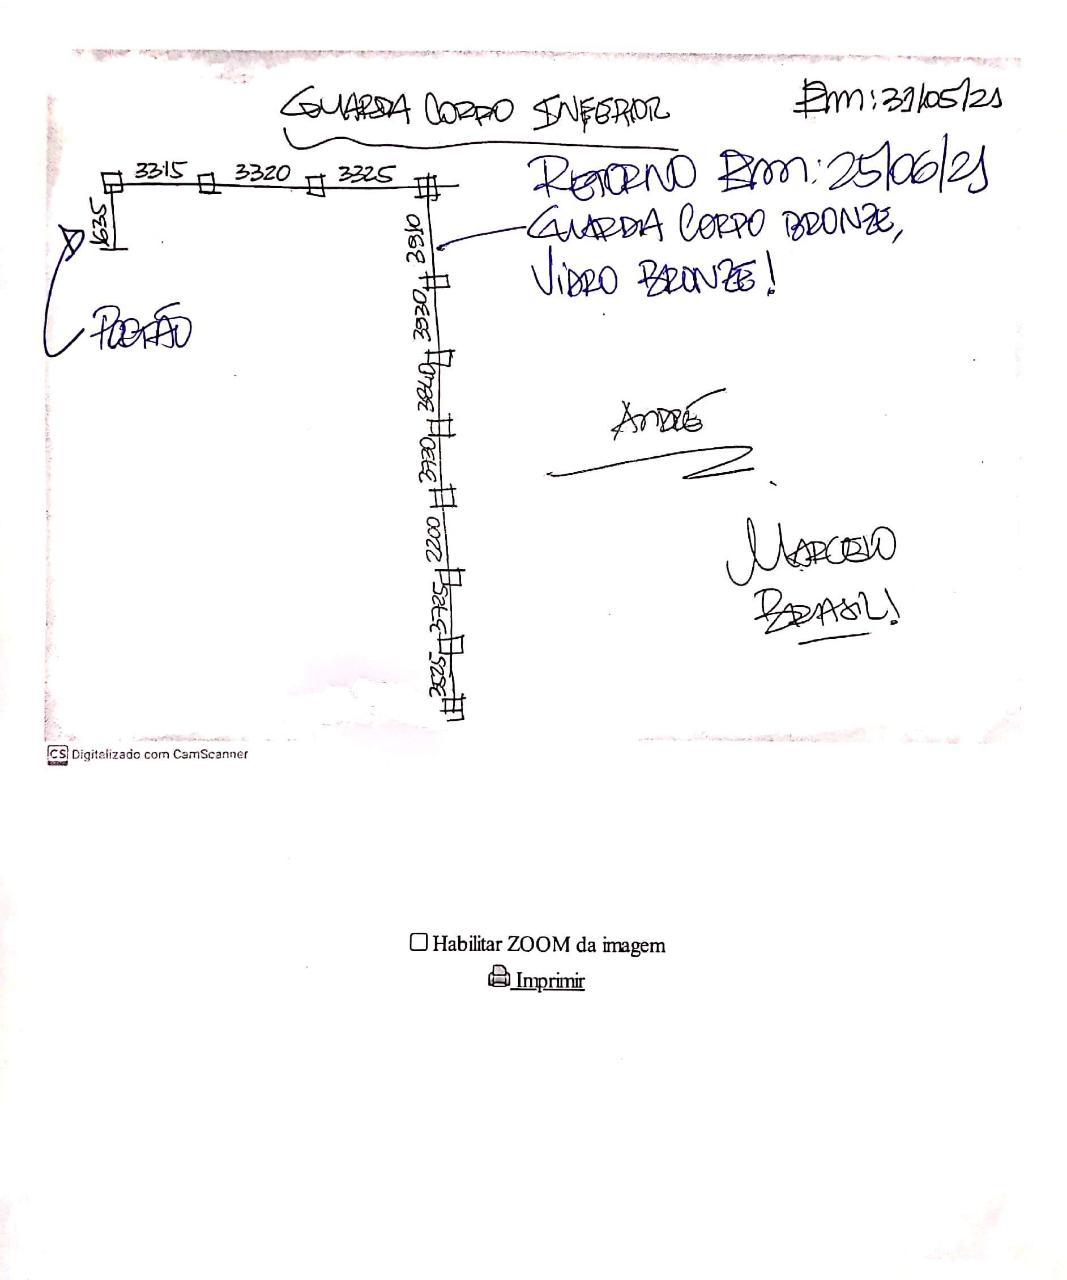 GUARDA CORPO INFERIOR
Em: 31/05/21
3315
3320
3325
RETORNO Em: 25/06/21
635
GUARDA CORPO BRONZE,
VIDRO BRONZE!
3910
3930
PORTÃO
3840
3730
ANDRÉ
2200
MARCELO
BRASIL!
CS Digitalizado com CamScanner
Habilitar ZOOM da imagem
Imprimir